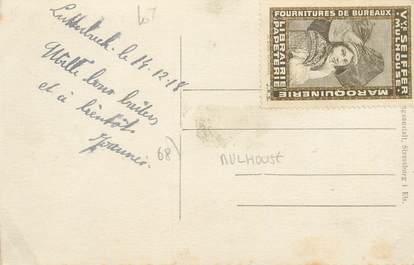 67
Lutterbach le 14.12.18
Mille bons baisers
et à bientôt
68
MULHOUSE
Vve SEIFFER
MULHOUSE
FOURNITURES DE BUREAUX
LIBRAIRIE
PAPETERIE
MAROQUINERIE
Strassburg i. Els.